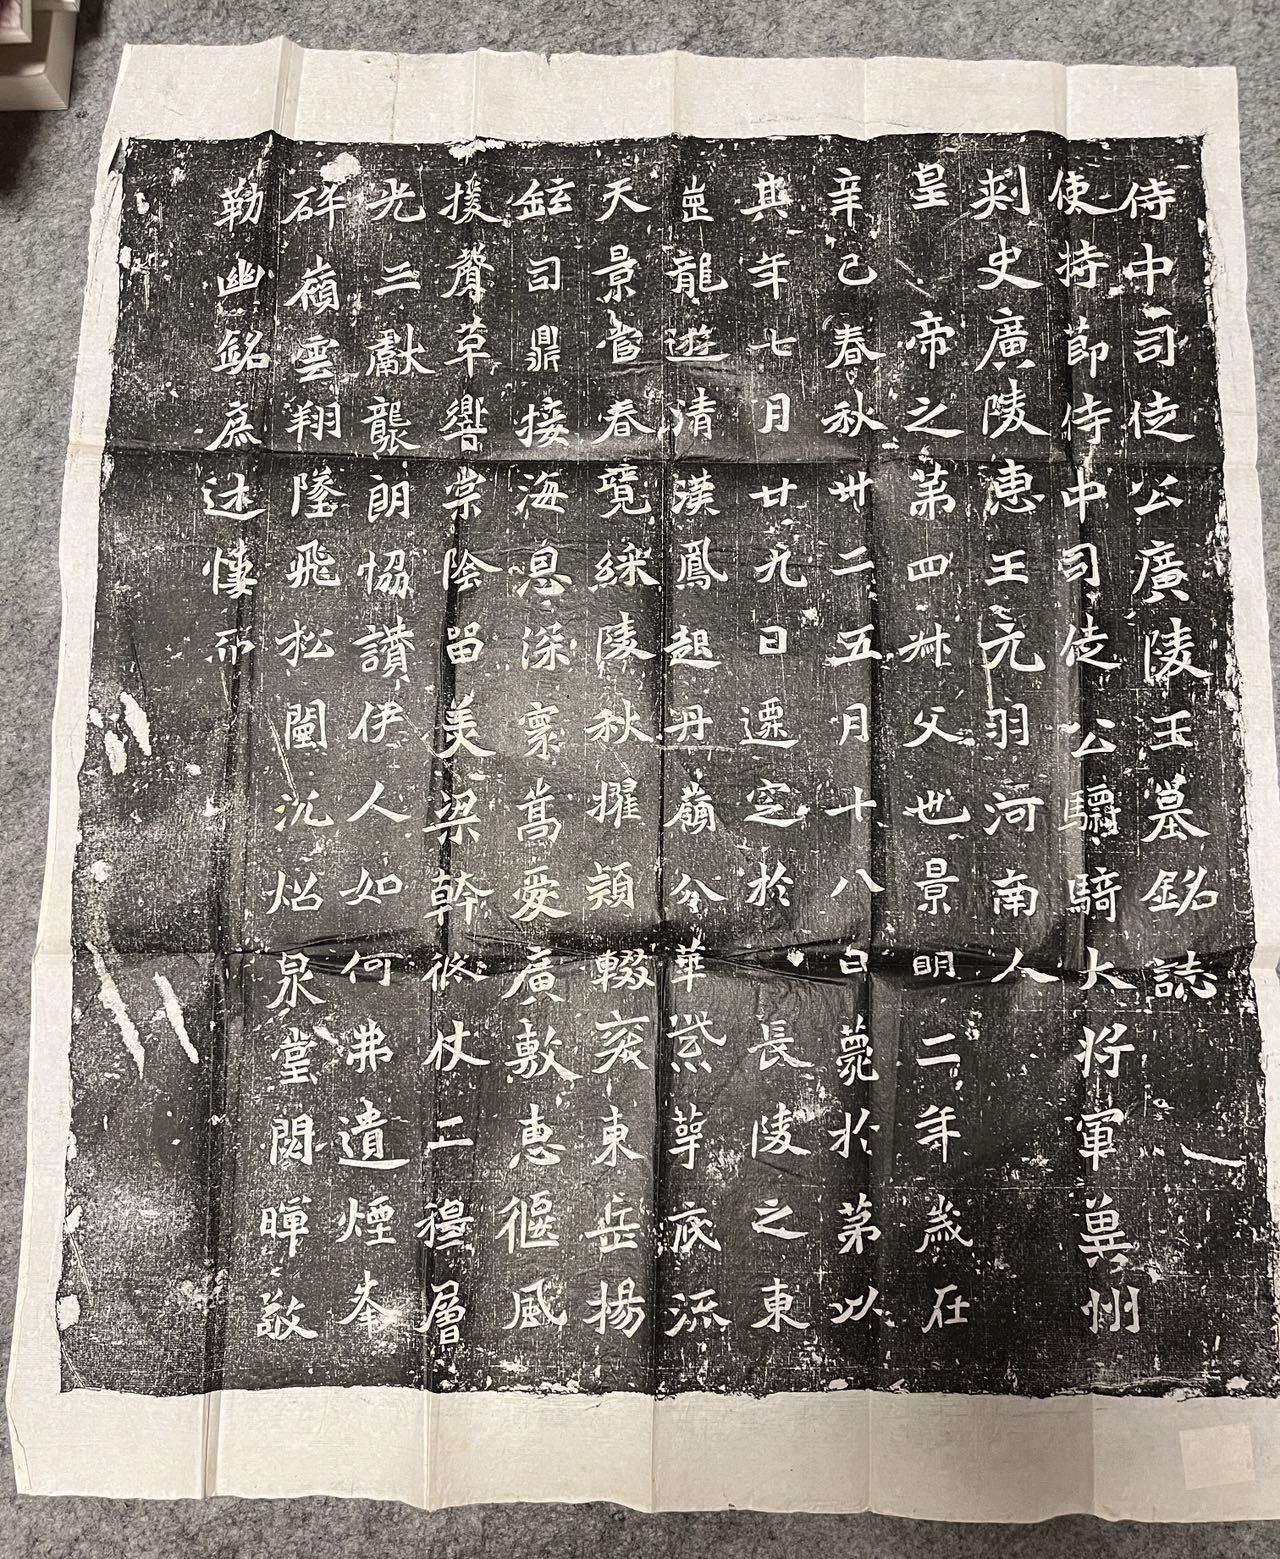 侍中司徒公廣陵王墓銘誌
使持節侍中司徒公驃騎大將軍冀州
刾史廣陵惠王元羽河南人
皇帝之第四叔父也景明二年歲在
辛巳春秋卅二五月十八日薨於第以
其年七月廿九日遷窆於長陵之東
崑龍遊清漢鳳起丹嶺分華紫萼底流
天景當春競綵陵秋擢穎輟袞東岳揚
鉉司鼎接海息深寰蒿愛廣敷惠偃風
援聲革響棠陰留美梁幹條仗二穆層
光二獻襲朗協讚伊人如何弗遺煙峯
碎嶺雲翔墜飛松闈沉炤泉堂閟暉敬
勒幽銘庶述悽而